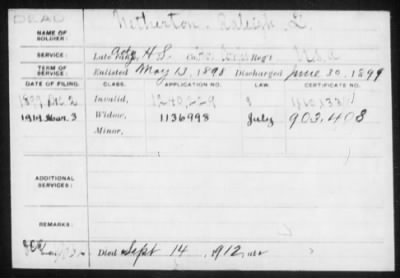 DEAD
NAME OF SOLDIER: Netherton, Raleigh L.
SERVICE: Late H S. Hosp. Corps Reg't U.S.A
TERM OF SERVICE: Enlisted May 13, 1898 Discharged June 30, 1899
DATE OF FILING. CLASS. APPLICATION NO. LAW. CERTIFICATE NO.
1899 Dec. 2 Invalid, 1240,229
1919 Mar. 3 Widow, 1136998 July 903,408
Minor,
ADDITIONAL SERVICES:
REMARKS:
Died Sept 14, 1912, at